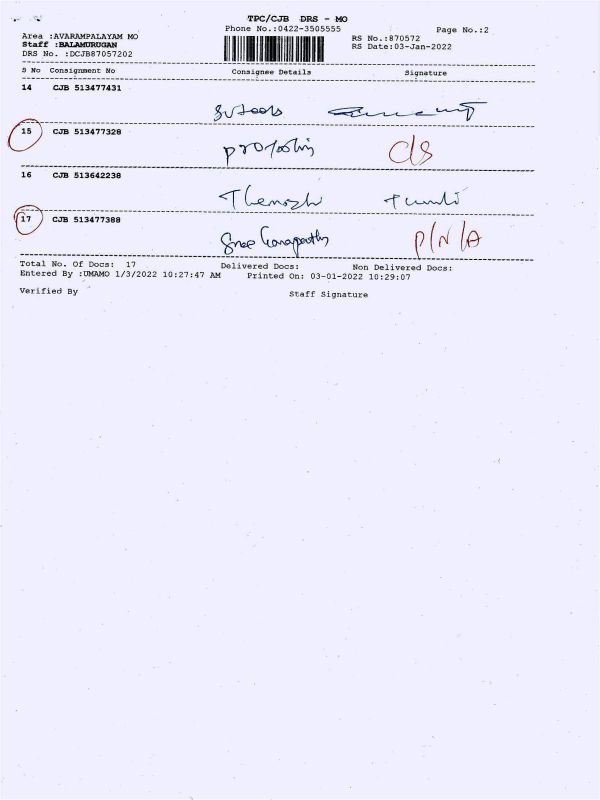 TPC/CJB DRS - MO
Phone No.:0422-3505555
Page No.:2
Area :AVARAMPALAYAM MO
RS No.:870572
Staff :BALAMURUGAN
RS Date:03-Jan-2022
DRS No. :DCJB87057202
S No Consignment No Consignee Details Signature
14 CJB 513477431
15 CJB 513477328
C/S
16 CJB 513642238
17 CJB 513477388
Sree Ganapathy P/N/A
Total No. Of Docs: 17 Delivered Docs: Non Delivered Docs:
Entered By :UMAMO 1/3/2022 10:27:47 AM Printed On: 03-01-2022 10:29:07
Verified By Staff Signature